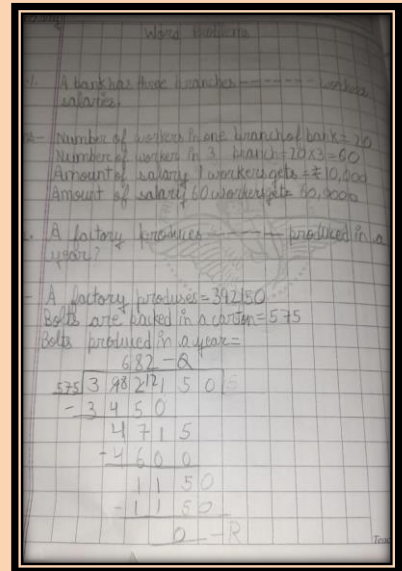 Word Problems
A bank has three branches ------- workers
salaries.
Number of workers in one branch of bank = 20
Number of worker in 3 branch = 20×3=60
Amount of salary 1 workers gets = ₹10,000
Amount of salary 60 workers gets
A factory produces ------- produced in a
year?
A factory produses = 392150
Bolts are packed in a carton = 575
Bolts produced in a year =
682 - Q
575
- 3 4 5 0
4 7 1 5
- 4 6 0 0
1 1 5 0
- 1 1 5 0
0 - R